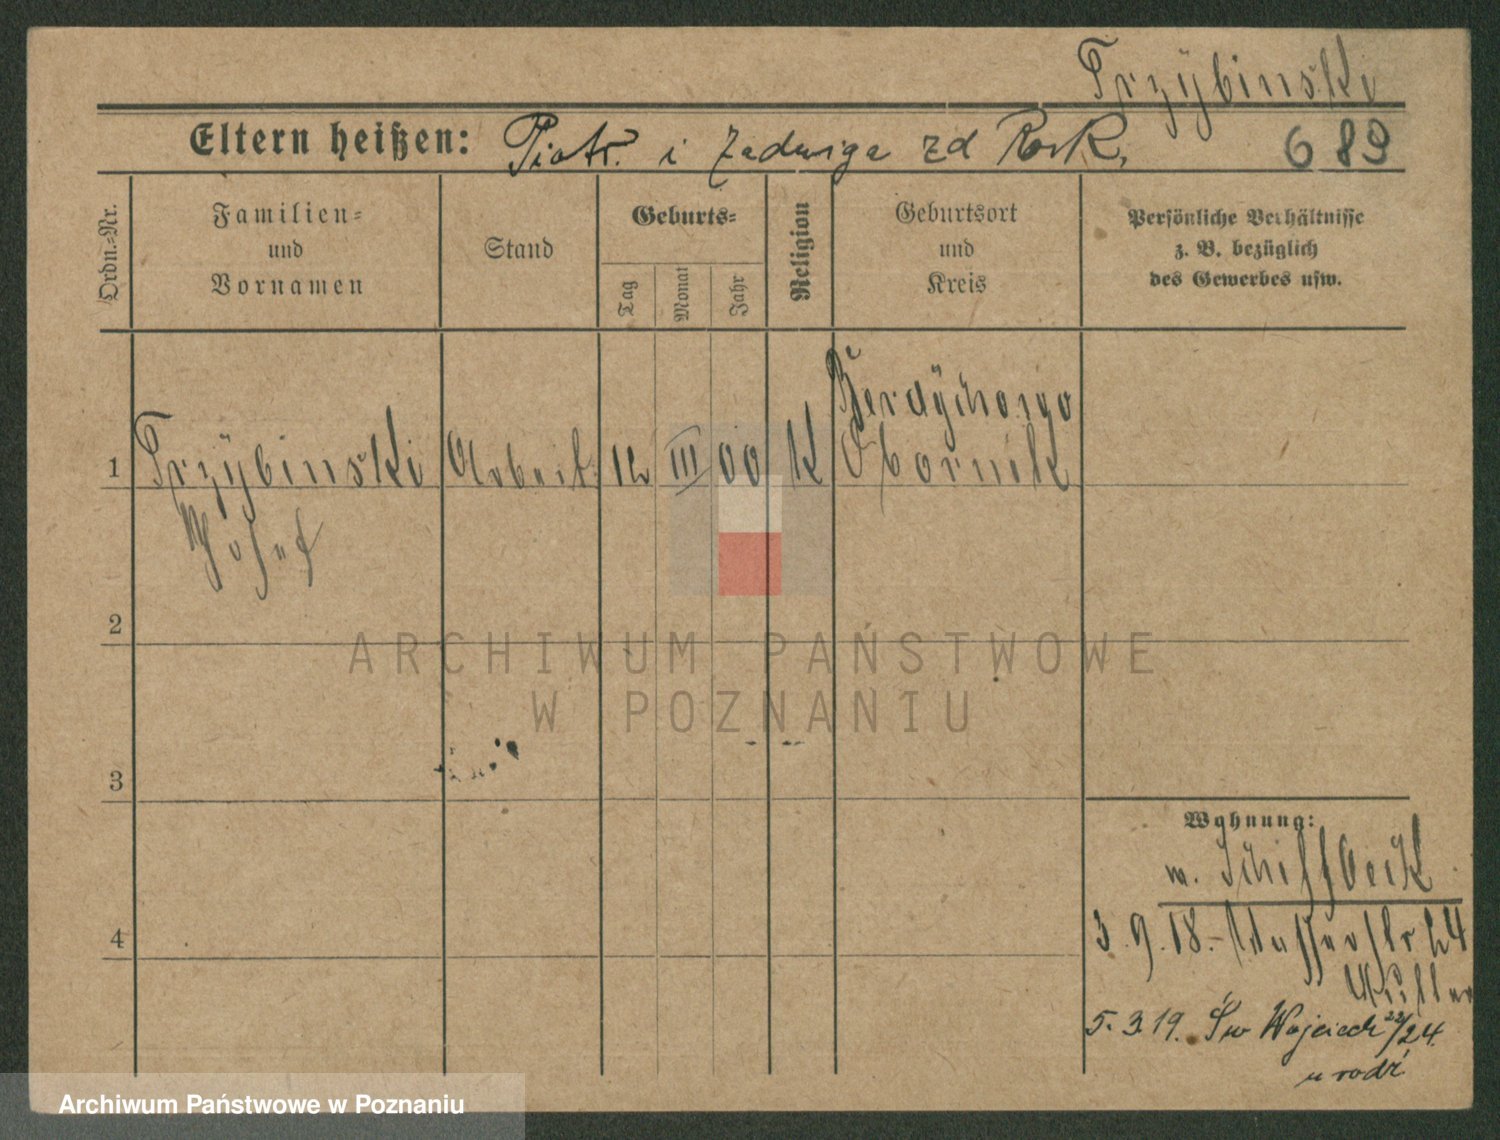 Przybinski
Eltern heißen: Piotr. i Jadwiga zd
689
Ordn.-Nr.
Familien-
und
Vornamen
Stand
Geburts-
Tag
Monat
Jahr
Religion
Geburtsort
und
Kreis
Persönliche Verhältnisse
z. B. bezüglich
des Gewerbes usw.
1 Przybinski Arbeit. 12 III 00 K
Obornik
Josef
2
3
4
Wohnung:
w. Schiffbeck
3.9.18. Wasserstr 24
Müller
5.3.19. Św Wojciech 22/24.
u rodź
ARCHIWUM PAŃSTWOWE
W POZNANIU
Archiwum Państwowe w Poznaniu